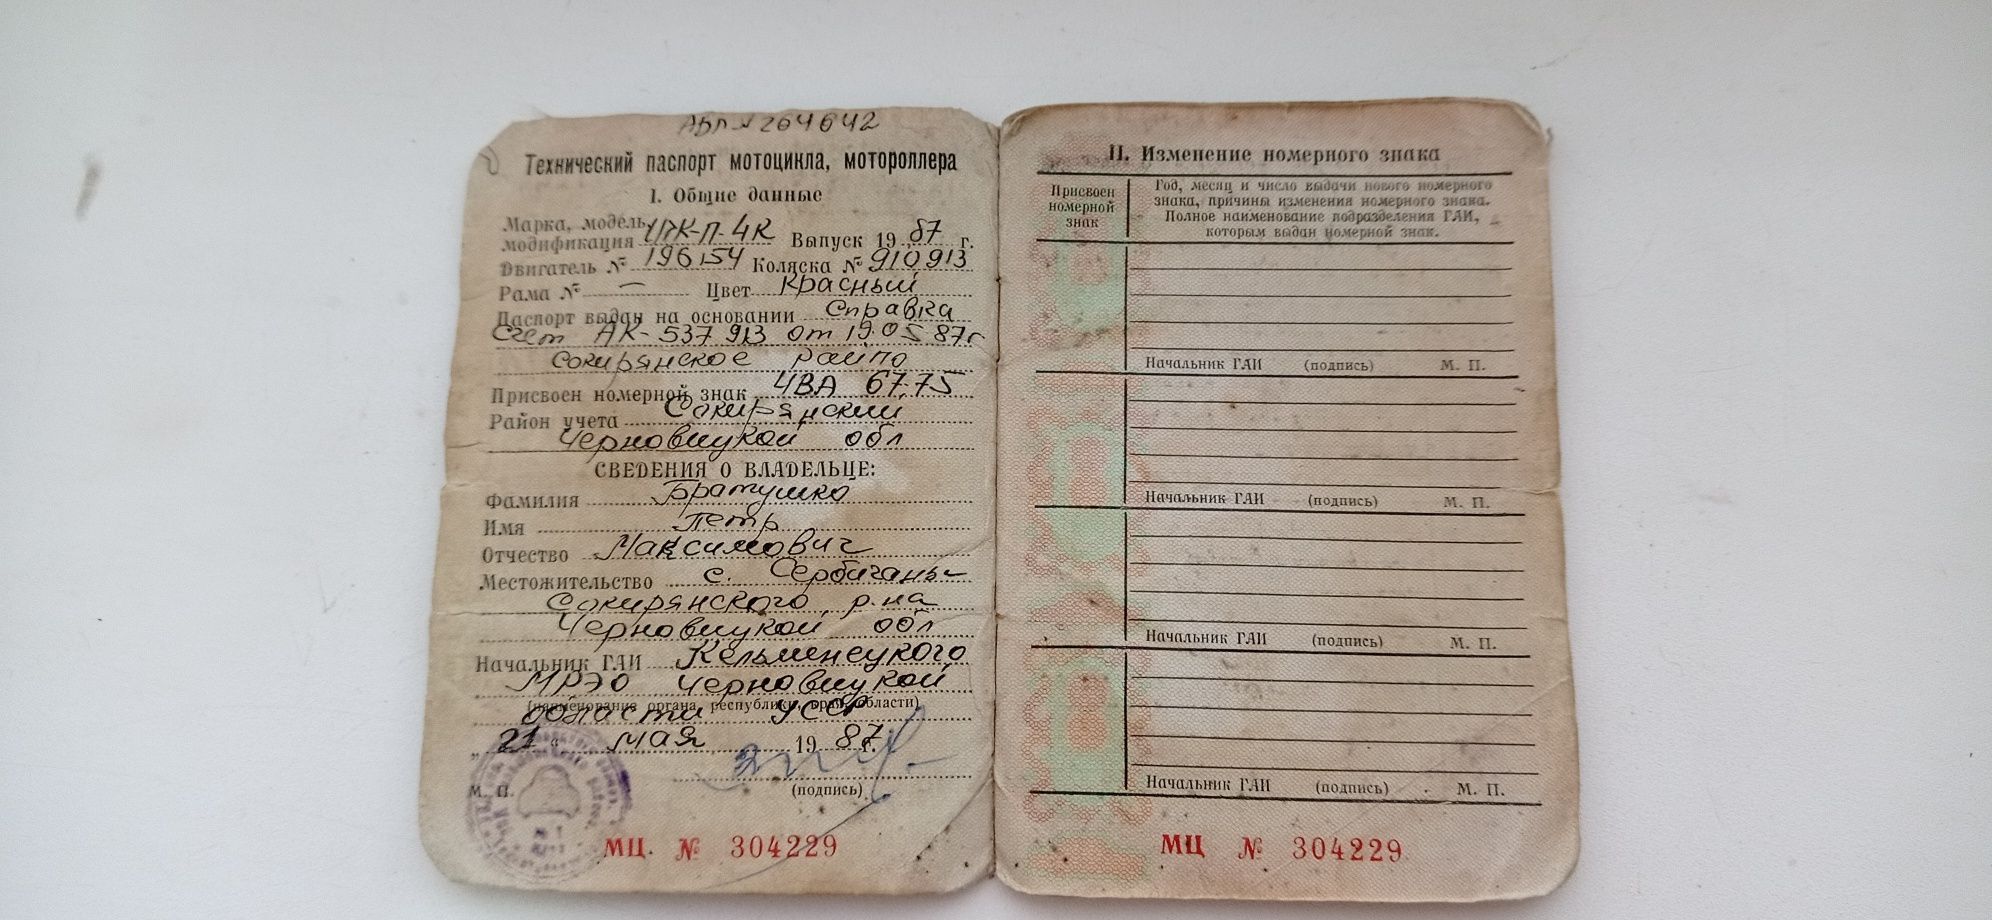 АБЛ № 264642
Технический паспорт мотоцикла, мотороллера
I. Общие данные
Марка, модель,
модификация ИЖ-П-4К Выпуск 1987 г.
Двигатель № 196154 Коляска № 910913
Рама № — Цвет красный
Паспорт выдан на основании справка
счет АК-537913 от 19.05 87г
Сокирянское райпо
Присвоен номерной знак ЧВА 67.75
Район учета Сокирянский
Черновицкой обл
СВЕДЕНИЯ О ВЛАДЕЛЬЦЕ:
Фамилия Братушко
Имя Петр
Отчество Максимович
Местожительство с. Сербичаны
Сокирянского р-на
Черновицкой обл
Начальник ГАИ Кельменецкого
МРЭО Черновицкой
(наименование органа, республики, края, области)
области УССР
„ 21 “ мая 1987 г.
М. П.
(подпись)
МЦ № 304229
II. Изменение номерного знака
Присвоен номерной знак
Год, месяц и число выдачи нового номерного
знака, причины изменения номерного знака.
Полное наименование подразделения ГАИ,
которым выдан номерной знак.
Начальник ГАИ (подпись) М. П.
Начальник ГАИ (подпись) М. П.
Начальник ГАИ (подпись) М. П.
Начальник ГАИ (подпись) М. П.
МЦ № 304229